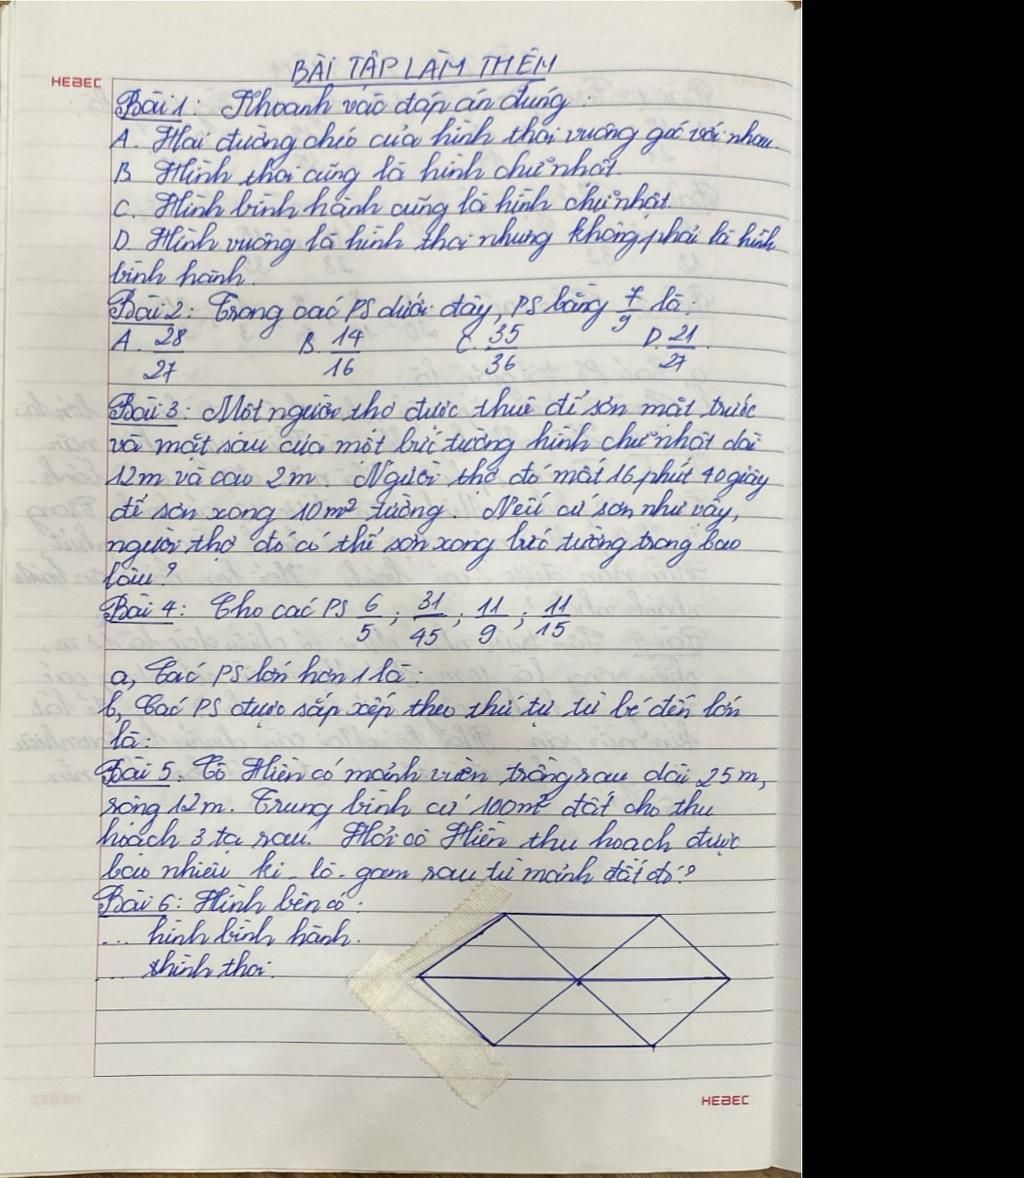 BÀI TẬP LÀM THÊM
HEBEC
Bài 1: Khoanh vào đáp án đúng:
A. Hai đường chéo của hình thoi vuông góc với nhau.
B. Hình thoi cũng là hình chữ nhật.
C. Hình bình hành cũng là hình chữ nhật.
D. Hình vuông là hình thoi nhưng không phải là hình
bình hành.
Bài 2: Trong các PS dưới đây, PS bằng 7/9 là:
A. 28/27 B. 14/16 C. 35/36 D. 21/27.
Bài 3: Một người thợ được thuê để sơn mặt trước
và mặt sau của một bức tường hình chữ nhật dài
12m và cao 2m. Người thợ đó mất 16 phút 40 giây
để sơn xong 10m² tường. Nếu cứ sơn như vậy,
người thợ đó có thể sơn xong bức tường trong bao
lâu?
Bài 4: Cho các PS 6/5; 31/45; 11/9; 11/15
a, Các PS lớn hơn 1 là:
b, Các PS được sắp xếp theo thứ tự từ bé đến lớn
là:
Bài 5. Cô Hiền có mảnh vườn trồng rau dài 25m,
rộng 12m. Trung bình cứ 100m² đất cho thu
hoạch 3 tạ rau. Hỏi cô Hiền thu hoạch được
bao nhiêu ki-lô-gam rau từ mảnh đất đó?
Bài 6: Hình bên có:
... hình bình hành.
... hình thoi.
HEBEC